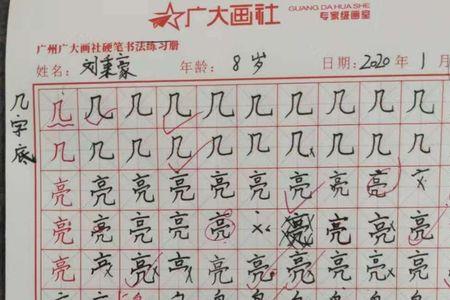 广大画社
GUANG DA HUA SHE
专家级画室
广州广大画社硬笔书法练习册
姓名：刘秉豪 年龄：8岁 日期：2020年1月
几字底
几 几 几 几 几 几 几 几 几 几
几 几 几 几 几 几 几 几 几 几
亮 亮 亮 亮 亮 亮 亮 亮 亮
亮 亮 亮 亮 亮 亮 亮 亮 亮
亮 亮 亮 亮 亮 亮 亮 亮 亮